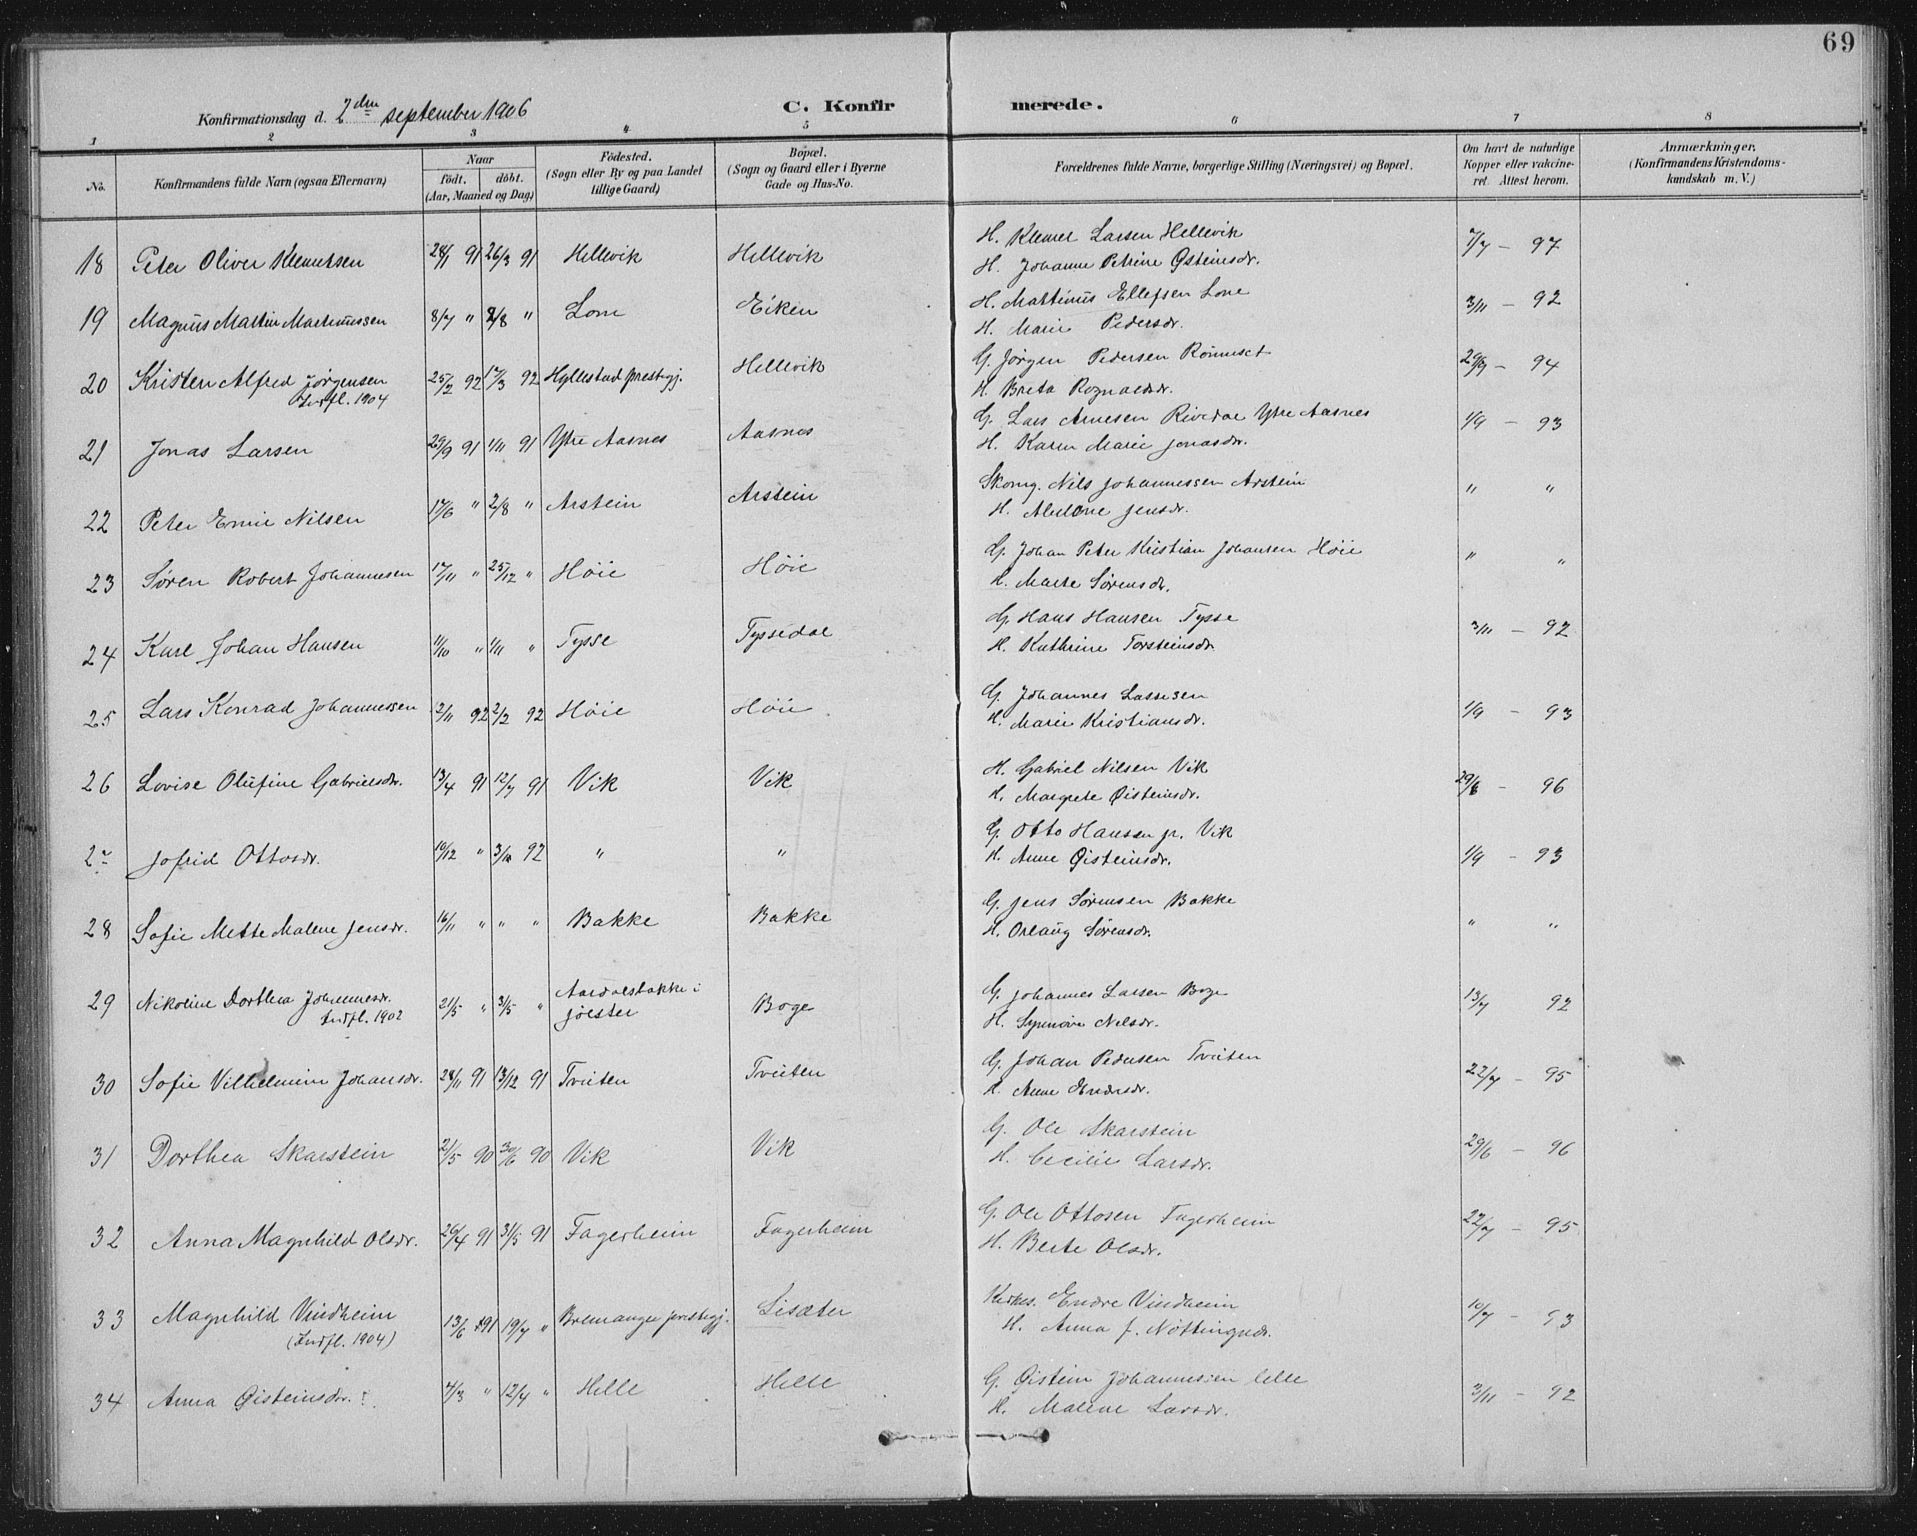 69
Konfirmationsdag d. 2den september 1906
C. Konfir merede.
1 2 3 4 5 6 7 8
No.
Konfirmandens fulde Navn (ogsaa Efternavn)
Naar
födt. döbt.
(Aar, Maaned og Dag)
Födested.
(Sogn eller By og paa Landet
tillige Gaard)
Bopæl.
(Sogn og Gaard eller i Byerne
Gade og Hus-No.
Forældrenes fulde Navne, borgerlige Stilling (Næringsvei) og Bopæl.
Om havt de naturlige
Kopper eller vakcine-
ret. Attest herom.
Anmærkninger,
(Konfirmandens Kristendoms-
kundskab m. V.)
18 Peter Oliver Klemetsen 24/1 91 26/3 91 Hellevik Hellevik H. Klemet Larsen Hellevik 7/7 – 97
H. Johanne Petrine Østeinsdr.
19 Magnus Martin Martinussen 8/7 " 2/8 " Lone Eiken H. Martinus Ellefsen Lone 3/11 – 92
H. Marie Pedersdr.
20 Kristen Alfred Jørgensen 25/2 92 17/3 92 Hyllestad prestegj. Hellevik G. Jørgen Pedersen Rönneset 29/9 – 94
Indfl. 1904
H. Breta Rognaldsdr.
21 Jonas Larsen 29/9 91 1/11 91 Ytre Aasnes Aasnes G. Lars Arnesen Rivedal Ytre Aasnes 1/9 – 93
H. Karen Marie Jonasdr.
22 Peter Emil Nilsen 17/6 " 2/8 " Arstein Arstein Skomg. Nils Johannessen Arstein " "
H. Abelone Jensdr.
23 Søren Robert Johannesen 17/11 " 25/12 " Höie Höie G. Johan Peter Kristian Johansen Höie " "
H. Marte Sørensdr.
24 Karl Johan Hansen 11/10 " 1/11 " Tysse Tyssedal G. Hans Hansen Tysse 3/11 – 92
H. Kathrine Torsteinsdr.
25 Lars Konrad Johannessen 12/11 92 2/2 92 Höie Höie G. Johannes Lassesen 1/9 – 93
H. Marie Kristiansdr.
26 Lovise Olufine Gabrielsdr. 13/4 91 12/7 91 Vik Vik H. Gabriel Nilsen Vik 29/6 – 96
H. Margrete Øisteinsdr.
27 Jofrid Ottosdr. 10/12 " 3/10 92 " " G. Otto Hansen jr. Vik 1/9 – 93
H. Anne Øisteinsdr.
28 Sofie Mette Malene Jensdr. 16/11 " " " Bakke Bakke G. Jens Sørensen Bakke " "
H. Orlaug Sørensdr.
29 Nikoline Dorthea Johannesdr. 21/5 " 31/5 " Aardalsbakke i Boge G. Johannes Larsen Boge 13/7 92
Indfl. 1902 Jölster
H. Synnöve Nelsdr.
30 Sofie Vilhelmine Johansdr. 28/11 91 13/12 91 Tviiten Tviiten G. Johan Pedersen Tviiten 22/7 – 95
H. Anne Endresdr.
31 Dorthea Skarstein 21/5 90 30/6 90 Vik Vik G. Ole Skarstein 29/6 – 96
H. Cecilie Larsdr.
32 Anna Magnhild Olsdr. 26/4 91 31/5 91 Fagerheim Fagerheim G. Ole Ottosen Fagerheim 22/7 – 95
H. Berte Olsdr.
33 Magnhild Vindheim 13/6 91 19/7 " Bremanger prestegj. Lisæter Kirkes. Endre Vindheim 10/7 – 93
(Indfl. 1904)
H. Anna J. Nöttingnedr.
34 Anna Øisteinsdr. 7/3 " 12/4 " Helle Helle G. Øistein Johannessen lelle 3/11 – 92
H. Malene Larsdr.